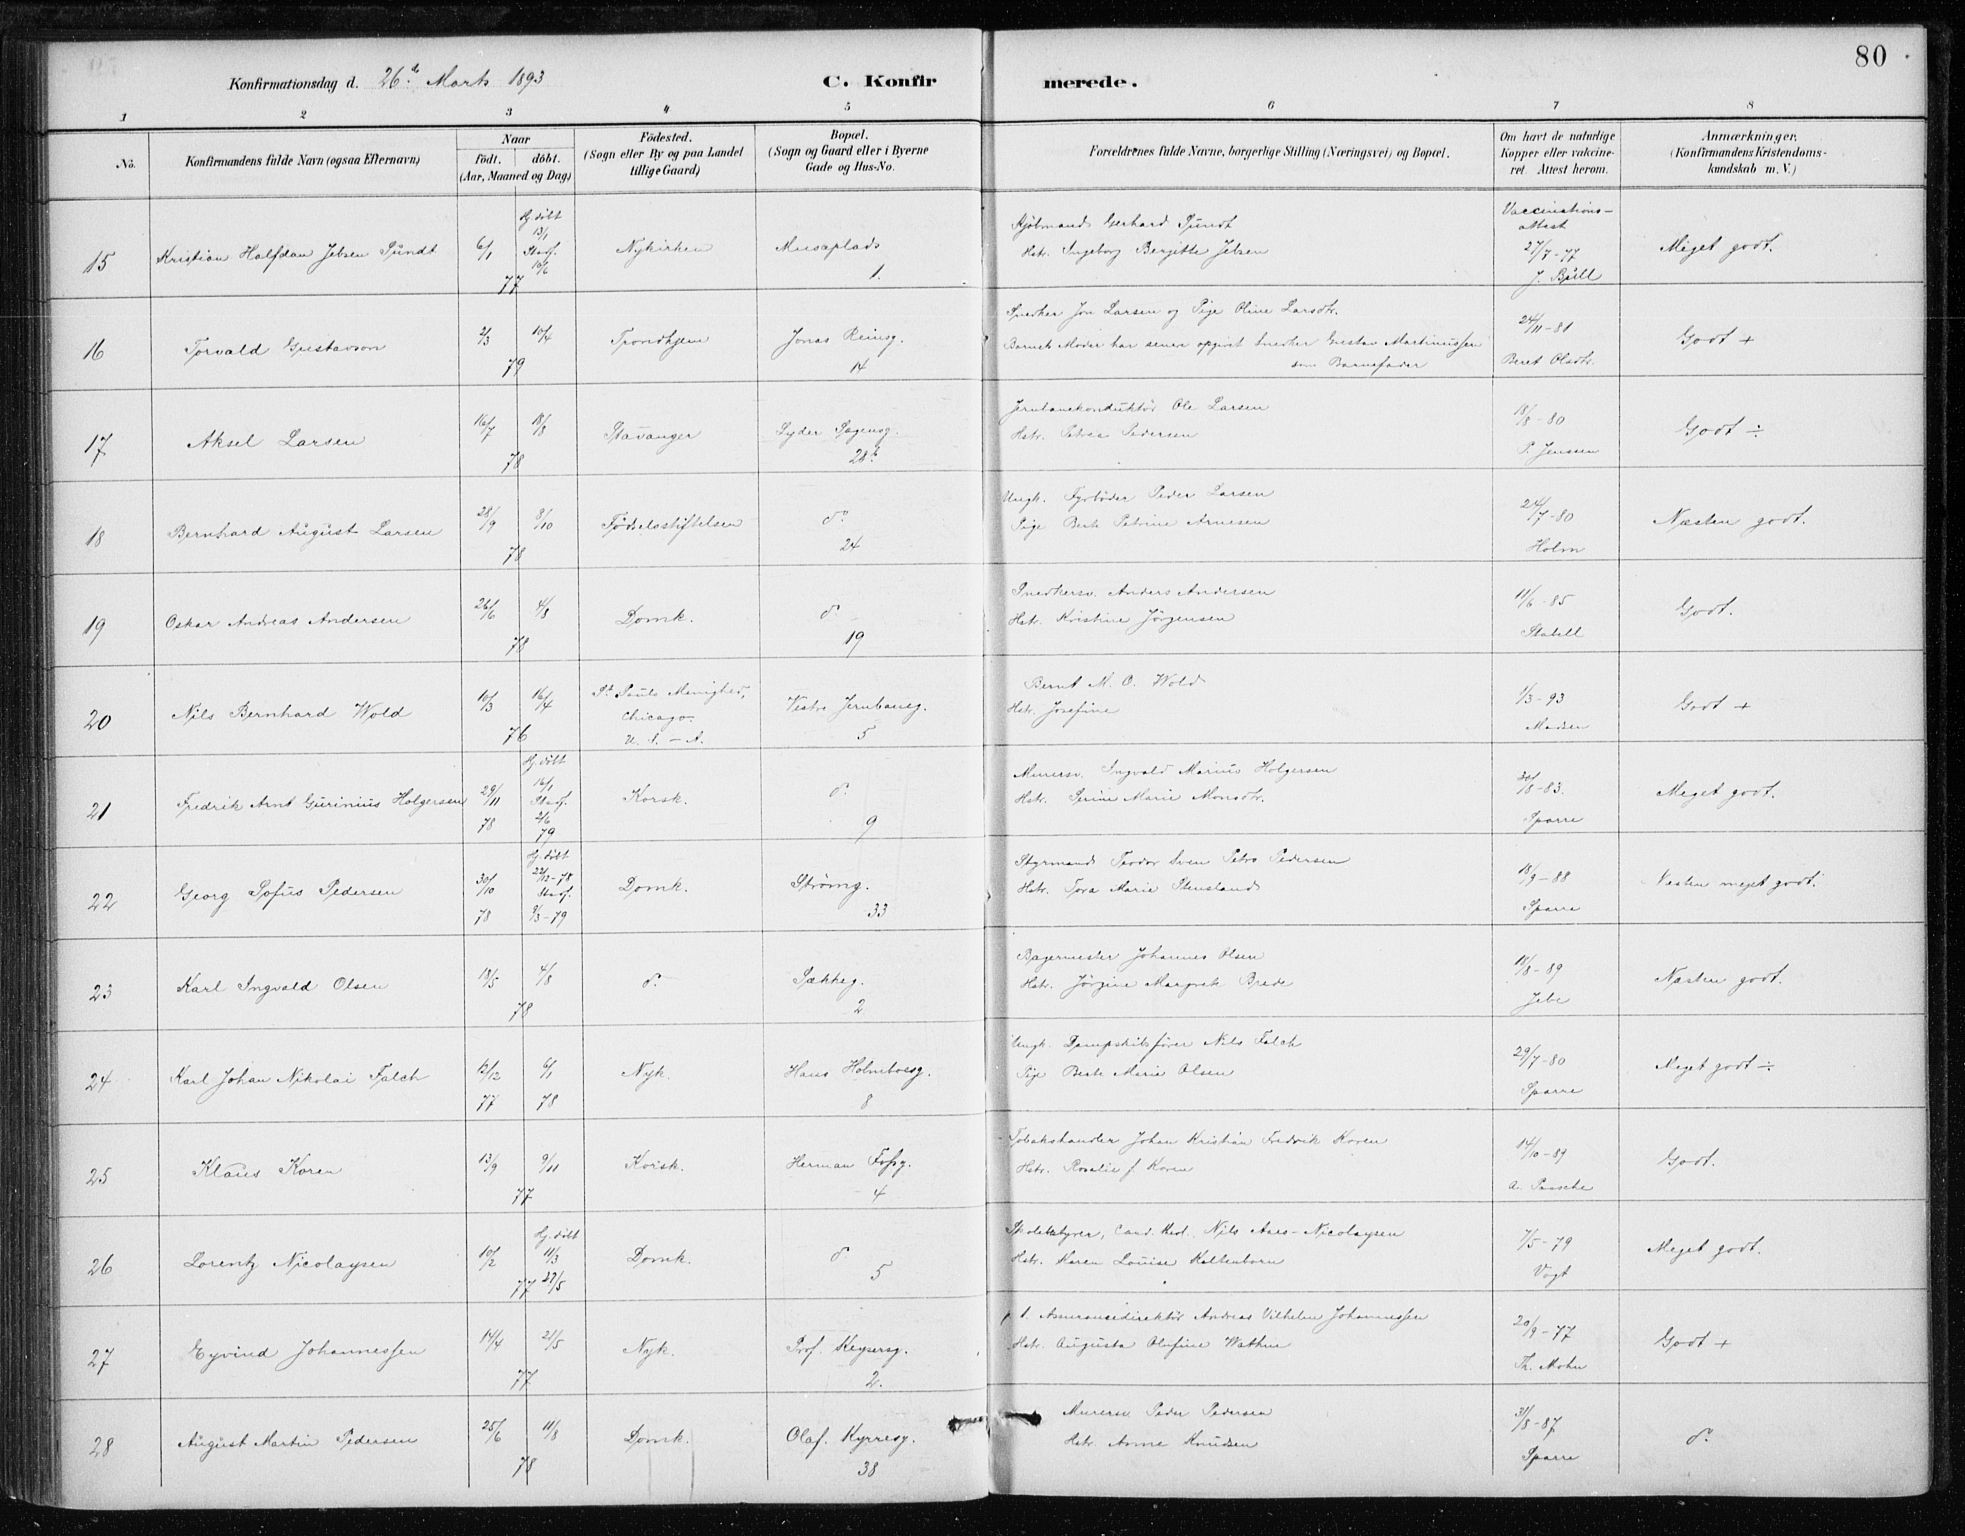 80
Konfirmationsdag d. 26de Marts 1893
C. Konfirmerede.
1 2 3 4 5 6 7 8
No.
Konfirmandens fulde Navn (ogsaa Efternavn)
Naar
födt. döbt.
(Aar, Maaned og Dag)
Födested.
(Sogn eller By og paa Landet
tillige Gaard)
Bopæl.
(Sogn og Gaard eller i Byerne
Gade og Hus-No.
Forældrenes fulde Navne, borgerlige Stilling (Næringsvei) og Bopæl.
Om havt de naturlige
Kopper eller vakcine-
ret. Attest herom.
Anmærkninger.
(Konfirmandens Kristendoms-
kundskab m. V.)
15 Kristian Halfdan Jebsen Sundt 6/1 Hj. döbt 13/1 Stadf. 10/6 77 Nykirken Museplads 1.
Kjöbmand Gerhard Sundt
Hstr. Ingeborg Bergitte Jebsen
Vaccinations-
attest
27/7-77
J. Büll
Meget godt.
16 Torvald Gustavson 2/3 10/4 79 Trondhjem Jonas Reinsg. 14
Snedker Jon Larsen og Pige Oline Larsdtr.
Barnets Moder har senere opgivet Snedker Gustav Martinussen
som Barnefader
24/11-81
Beret Olsdtr.
Godt +
17 Aksel Larsen 16/7 18/8 78 Stavanger Lyder Sagensg. 28b
Jernbanekonduktör Ole Larsen
Hstr. Petrea Pedersen
18/8-80
P. Jenssen
Godt ÷
18 Bernhard August Larsen 28/9 8/10 78 Födselsstiftelsen do 24
Ungk. Fyrböder Peder Larsen
Pige Berte Petrine Arnesen
24/7-80
Holm
Næsten godt.
19 Oskar Andreas Andersen 26/6 4/8 78 Domk. do 19
Snedkersv. Anders Andersen
Hstr. Kristine Jörgensen
11/6-85
Stabell
Godt.
20 Nils Bernhard Wold 10/3 16/4 76 St Pauls Menighed, Chicago. U. S. - A. Vestre Jernbaneg. 5
Bernt M. O. Wold
Hstr. Josefine
1/3-93
Madsen
Godt +
21 Fredrik Arnt Gurinius Holgersen 29/11 78 Hj. döbt 16/1 Stadf. 2/6 79 Korsk. do 9
Murersv. Ingvald Marius Holgersen
Hstr. Serine Marie Monsdtr.
30/8-83.
Sparre
Meget godt.
22 Georg Sofus Pedersen 30/10 78 Hj. döbt 22/12-78 Stadf. 9/3-79 Domk. Strömg. 33
Styrmand Teodor Sven Petro Pedersen
Hstr. Tora Marie Stensland
18/9-88
Sparre
Næsten meget godt.
23 Karl Ingvald Olsen 19/5 4/8 78 do Sækkeg. 2
Bagermester Johannes Olsen
Hstr. Jörgine Margrete Brede
19/8-89
Jebe
Næsten godt.
24 Karl Johan Nikolai Falch 12/12 77 6/1 78 Nyk. Hans Holmboesg. 8
Ungk. Dampskibsförer Nils Falch
Pige Berte Marie Olsen
29/7-80
Sparre
Meget godt ÷
25 Klaus Koren 13/9 9/11 77 Korsk. Herman Fossg. 4
Tobakshandler Johan Kristian Fredrik Koren
Hstr. Rosalie f. Koren
14/10-89
A. Paasche
Godt.
26 Lorentz Nicolaysen 10/2 Hj. döbt 11/3 27/5 77 Domk. do 5
Skolebestyrer, Cand. theol. Nils Aars-Nicolaysen
Hstr. Karen Louise Kaltenborn
7/5-79
Vogt
Meget godt.
27 Eyvind Johannessen 14/4 21/5 77 Nyk. Prof. Keysersg. 2.
Assurancedirektör Andreas Vilhelm Johannessen
Hstr. Augusta Olufine Wathne
20/9-77
Th. Mohn
Godt +
28 August Martin Pedersen 25/6 11/8 78 Domk. Olaf Kyrresg. 38
Murersv. Peder Pedersen
Hstr. Anne Knudsen
31/8-87
Sparre
do